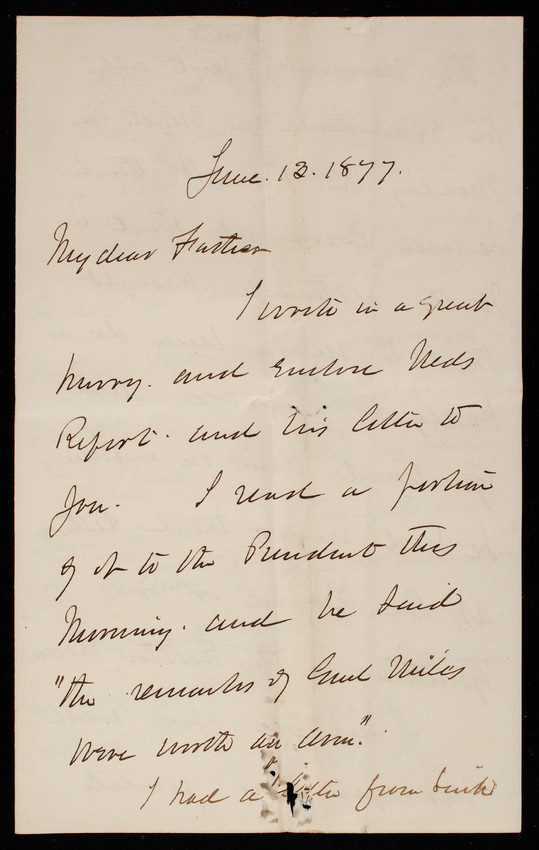 June. 13. 1877.
My dear Father
I write in a great
hurry. and Enclose Neds
Report. and his letter to
you. I read a portion
of it to the President this
Morning. and he said
"the remarks of Genl Miles
were worth an arm."
I had a letter from